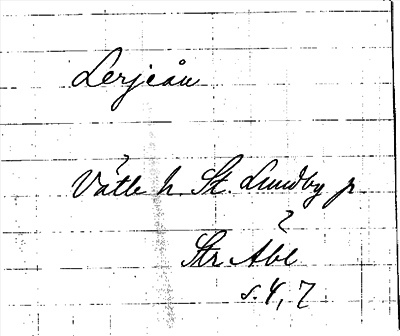 Lerjeån
?
Vätle h St. Lundby p
?
Str Abl
s. 4, 7